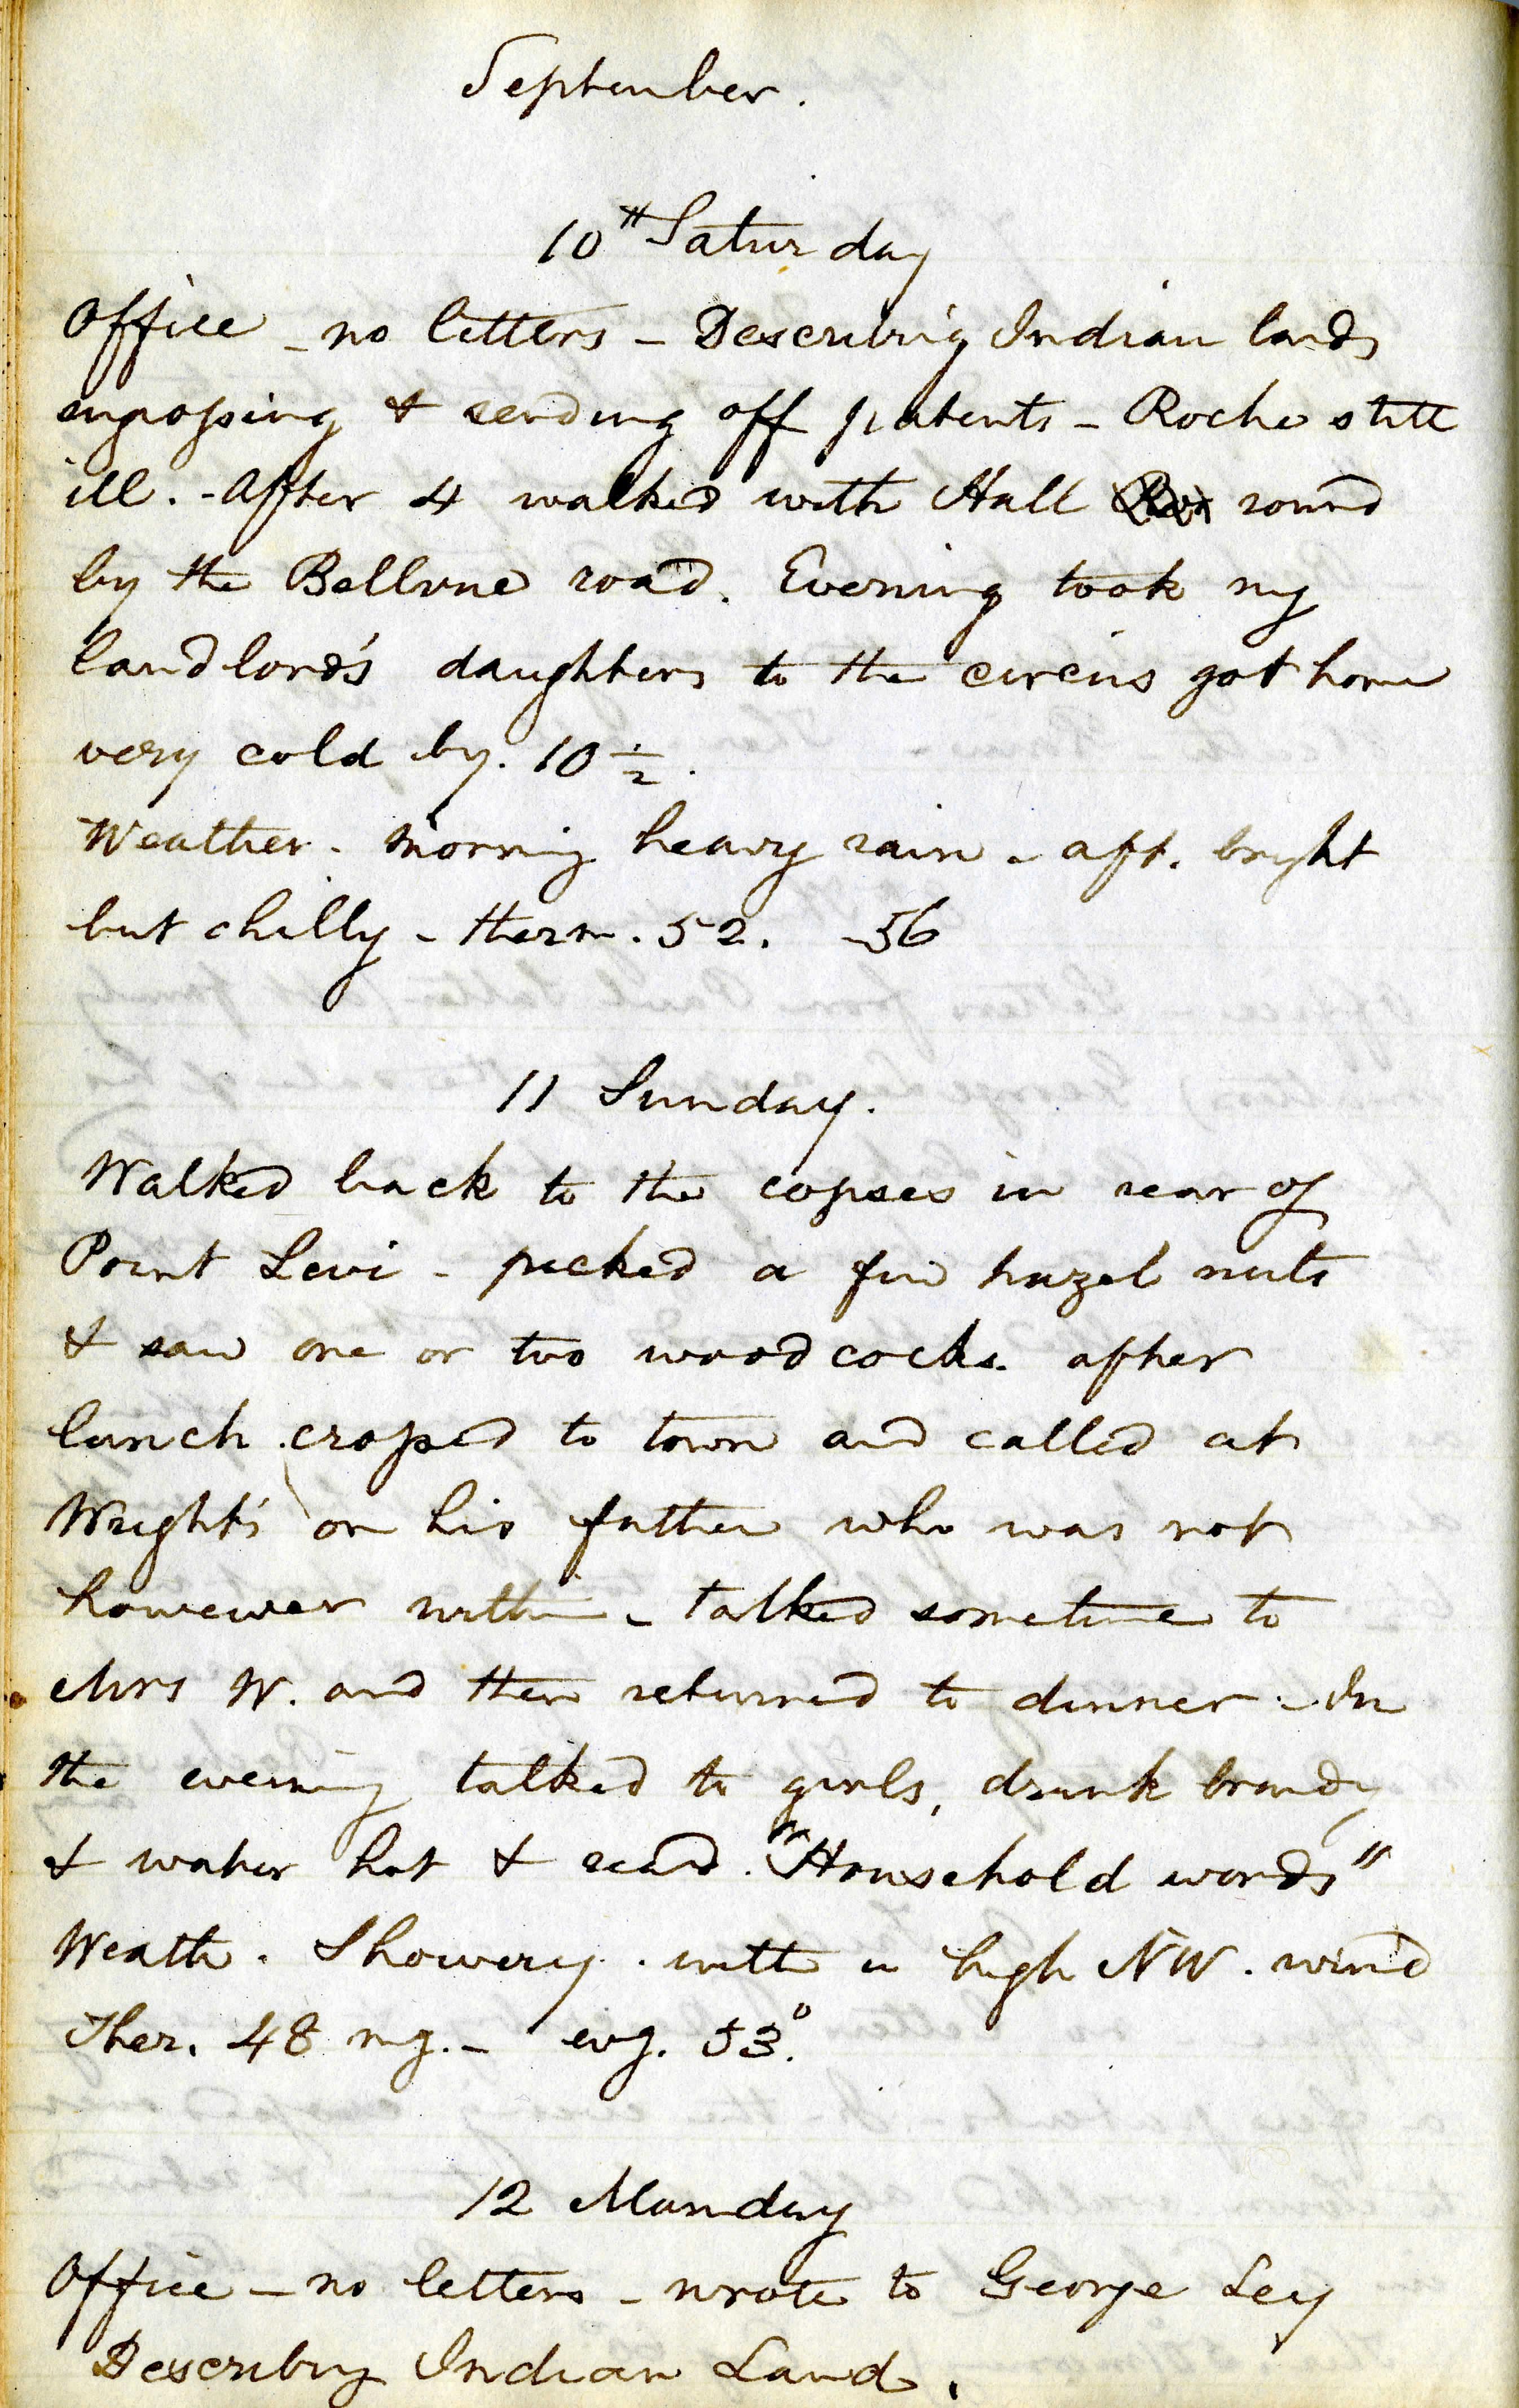 September.
10th Saturday
Office - no letters - Describing Indian lands
engrossing & sending off patents - Roche still
ill. - After 4 walked with Hall round
by the Bellvue road. Evening took my
landlord's daughters to the circus got home
very cold by. 10 1/2.
Weather - morning heavy rain - aft. bright
but chilly - therm. 52. - 56
11 Sunday.
Walked back to the copses in rear of
Point Levi - picked a few hazel nuts
& saw one or two woodcocks. after
lunch crossed to town and called at
Wright's on his father who was not
however within - talked sometime to
Mrs W. and then returned to dinner - In
the evening talked to girls, drank brandy
& water hot & read "Household words"
Weath. Showery. with a high NW. wind
Ther. 48 mg. - evg. 53°.
12 Monday
Office - no letters - wrote to George Ley
Describing Indian Land.